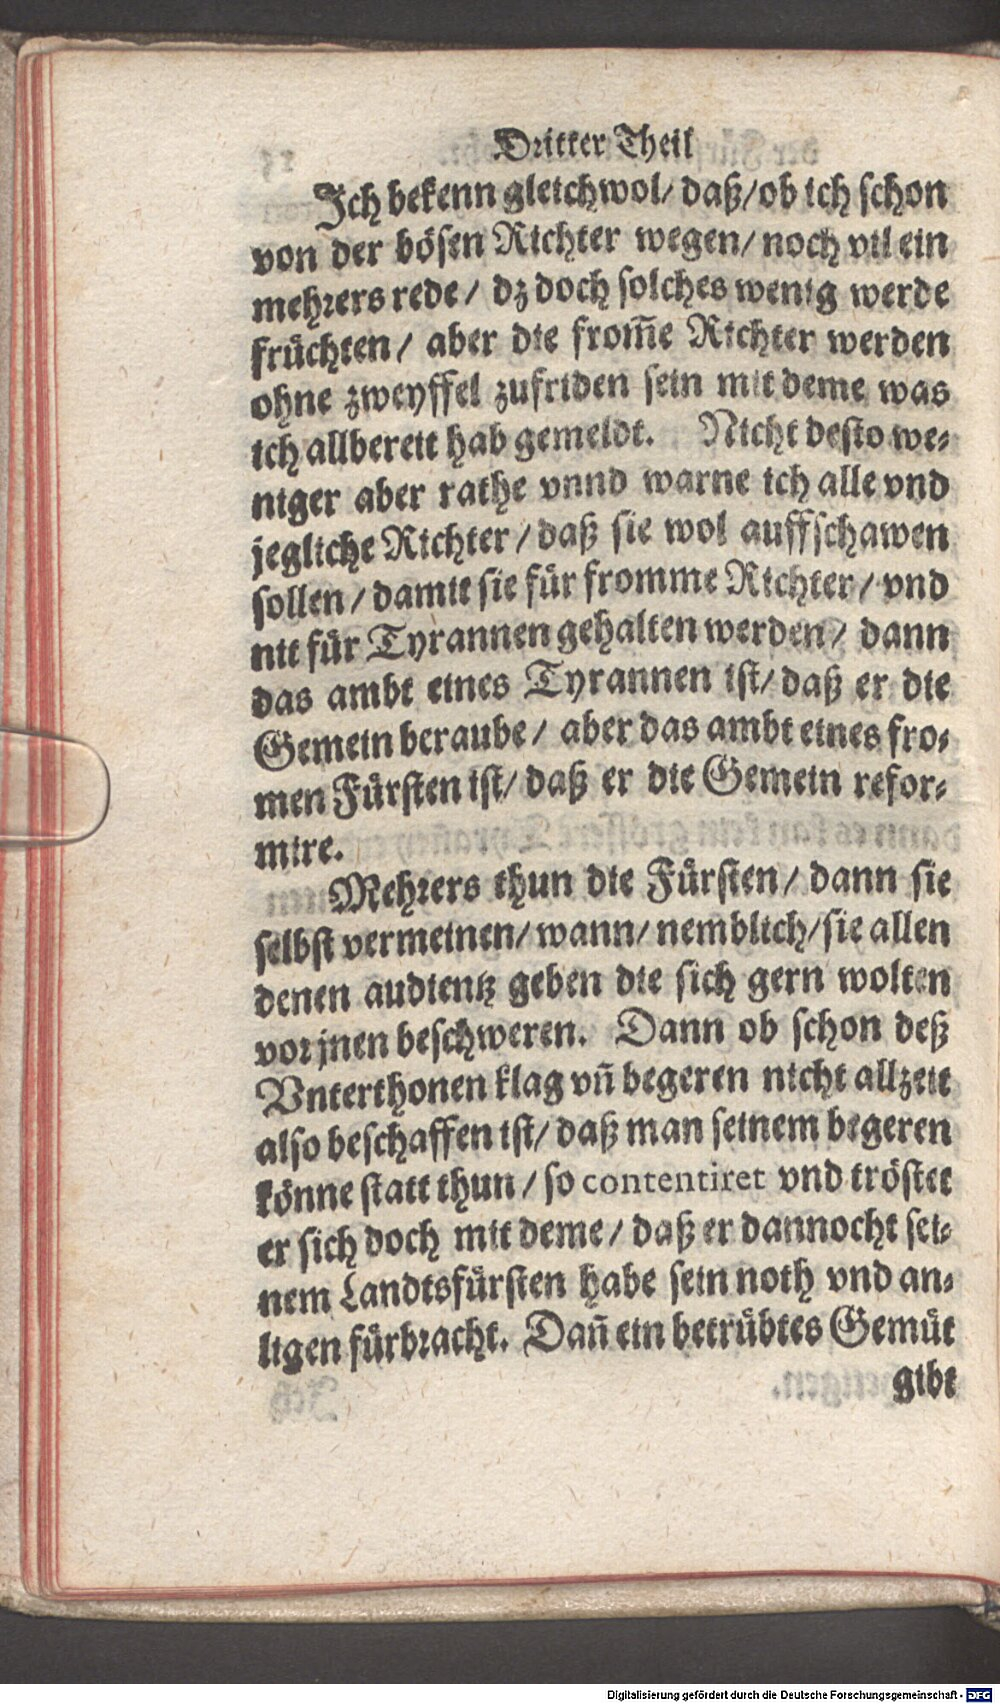 Dritter Theil
Ich bekenn gleichwol/ daß/ ob ich schon
von der bösen Richter wegen/ noch vil ein
mehrers rede/ dz doch solches wenig werde
früchten/ aber die from̃e Richter werden
ohne zweyffel zufriden sein mit deme was
ich allbereit hab gemeldt. Nicht desto we-
niger aber rathe vnnd warne ich alle vnd
jegliche Richter/ daß sie wol auffschawen
sollen/ damit sie für fromme Richter/ vnd
nit für Tyrannen gehalten werden/ dann
das ambt eines Tyrannen ist/ daß er die
Gemein beraube/ aber das ambt eines fro-
men Fürsten ist/ daß er die Gemein refor-
mire.
Mehrers thun die Fürsten/ dann sie
selbst vermeinen/ wann/ nemblich/ sie allen
denen audientz geben die sich gern wolten
vor jnen beschweren. Dann ob schon deß
Vnterthonen klag vn̄ begeren nicht allzeit
also beschaffen ist/ daß man seinem begeren
könne statt thun/ so contentiret vnd tröstet
er sich doch mit deme/ daß er dannocht sei-
nem Landtsfürsten habe sein noth vnd an-
ligen fürbracht. Dan̄ ein betrübtes Gemüt
gibt
Digitalisierung gefördert durch die Deutsche Forschungsgemeinschaft - DFG